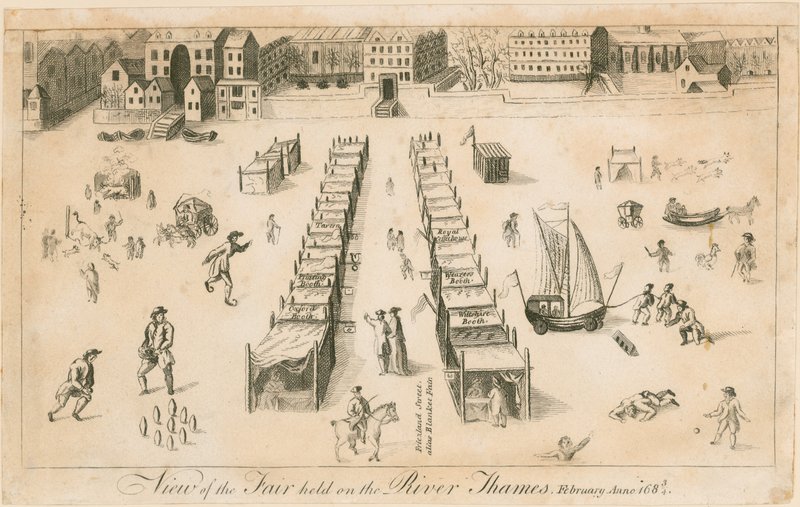 Tavern
Printing
Booth.
Oxford
Booth.
Royal
Coffee house
Weavers
Booth.
Wiltshire
Booth.
Friezland Street.
alias Blanket Fair
View of the Fair held on the River Thames. February Anno 168 3/4.